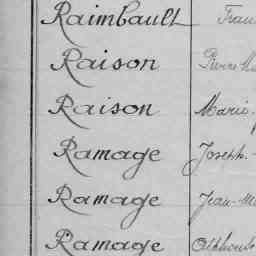 Raimbault Fran
Raison Pierre
Raison Marie
Ramage Joseph-
Ramage Jean-M
Ramage Alphons